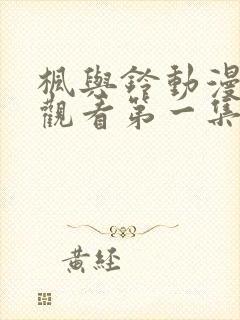 楓與鈴動漫
觀看第一集
黃経